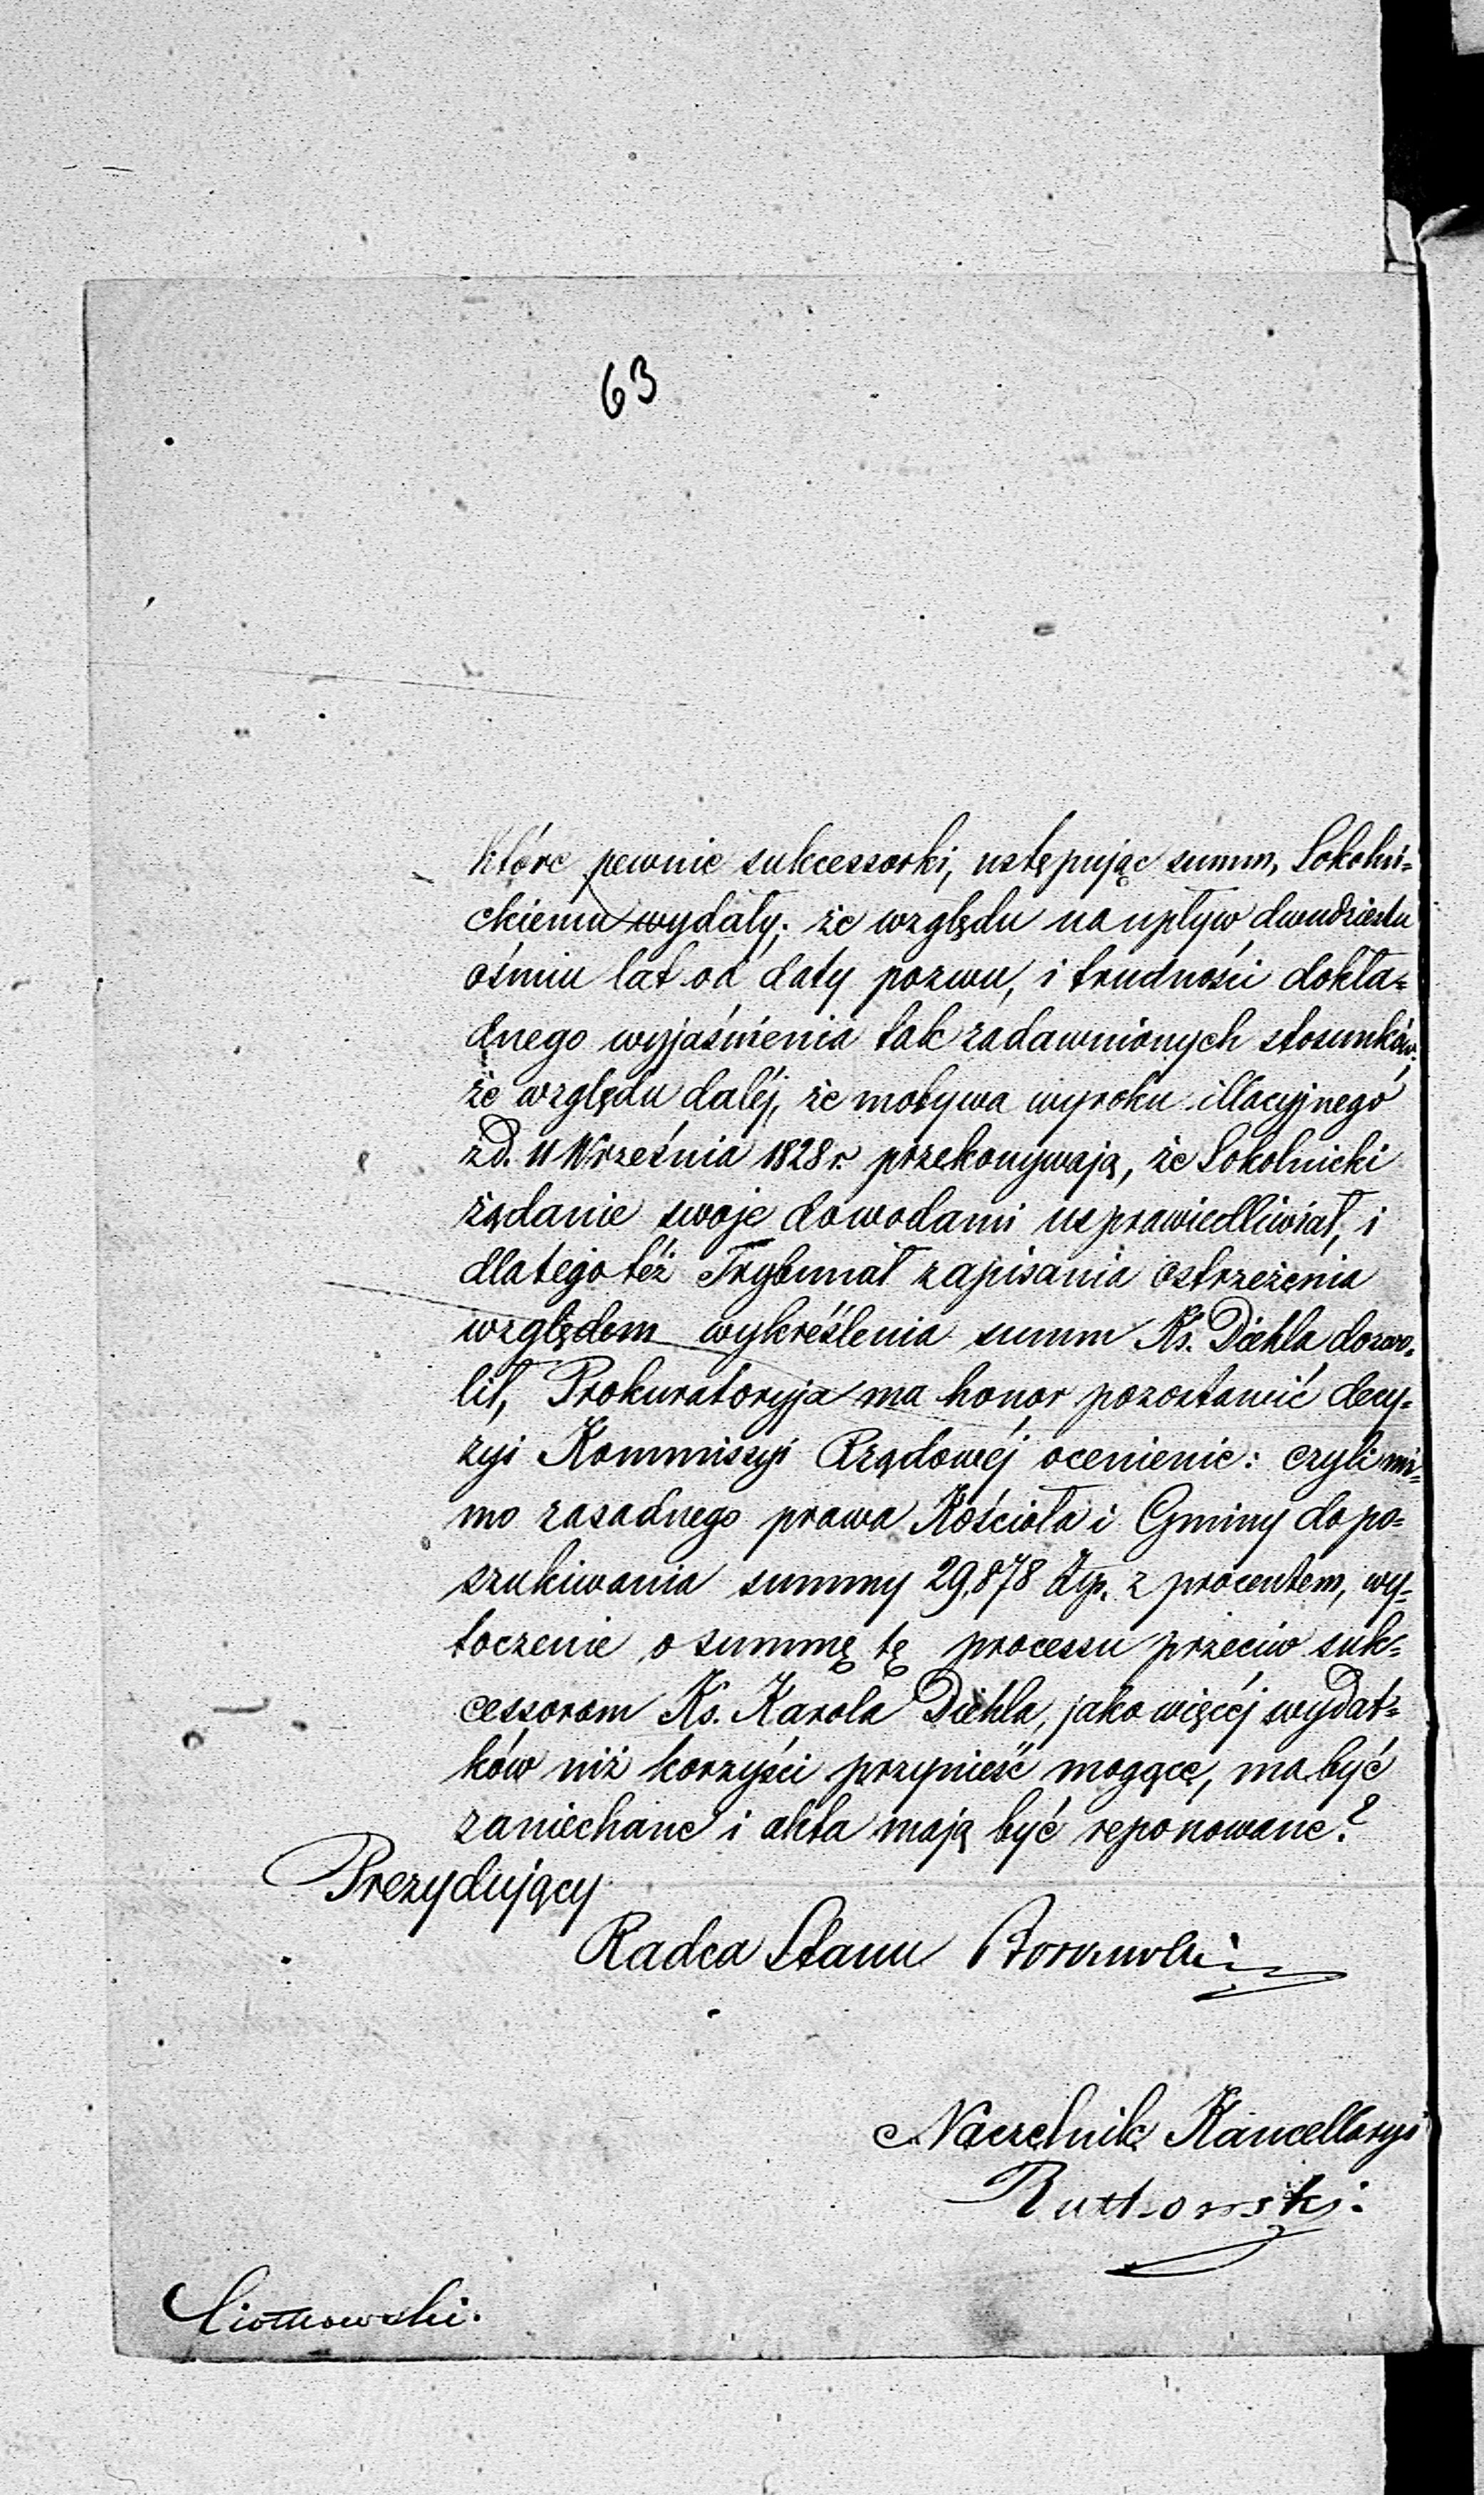 63
które pewnie sukcessorki, ustępując summ, Sokolni-
ckiemu wydały; że względu na upływ dwudziestu
ośmiu lat od daty pozwu, i trudności dokła-
dnego wyjaśnienia tak zadawnionych stosunków,
że względu daléj, że motywa wyroku illacyjnego
z d. 11 Września 1828 r. przekonywają, że Sokolnicki
żądanie swoje dowodami usprawiedliwiał, i
dlatego też Trybunał zapisania ostrzeżenia
względem wykreślenia summ Ks. Diehla dozwo-
lił, Prokuratoryja ma honor pozostawić decy-
zyi Kommissyi Rządowéj ocenienie: czyli mi-
mo zasadnego prawa Kościoła i Gminy do po-
szukiwania summy 29,878 złp. z procentem, wy-
toczenie o summę tę processu przeciw suk-
cessorom Ks. Karola Diehla, jako więcéj wydat-
ków niż korzyści przynieść mogące, ma być
zaniechane i akta mają być reponowane?
Prezydujący
Radca Stanu
Naczelnik Kancellaryi
Rutkowski.